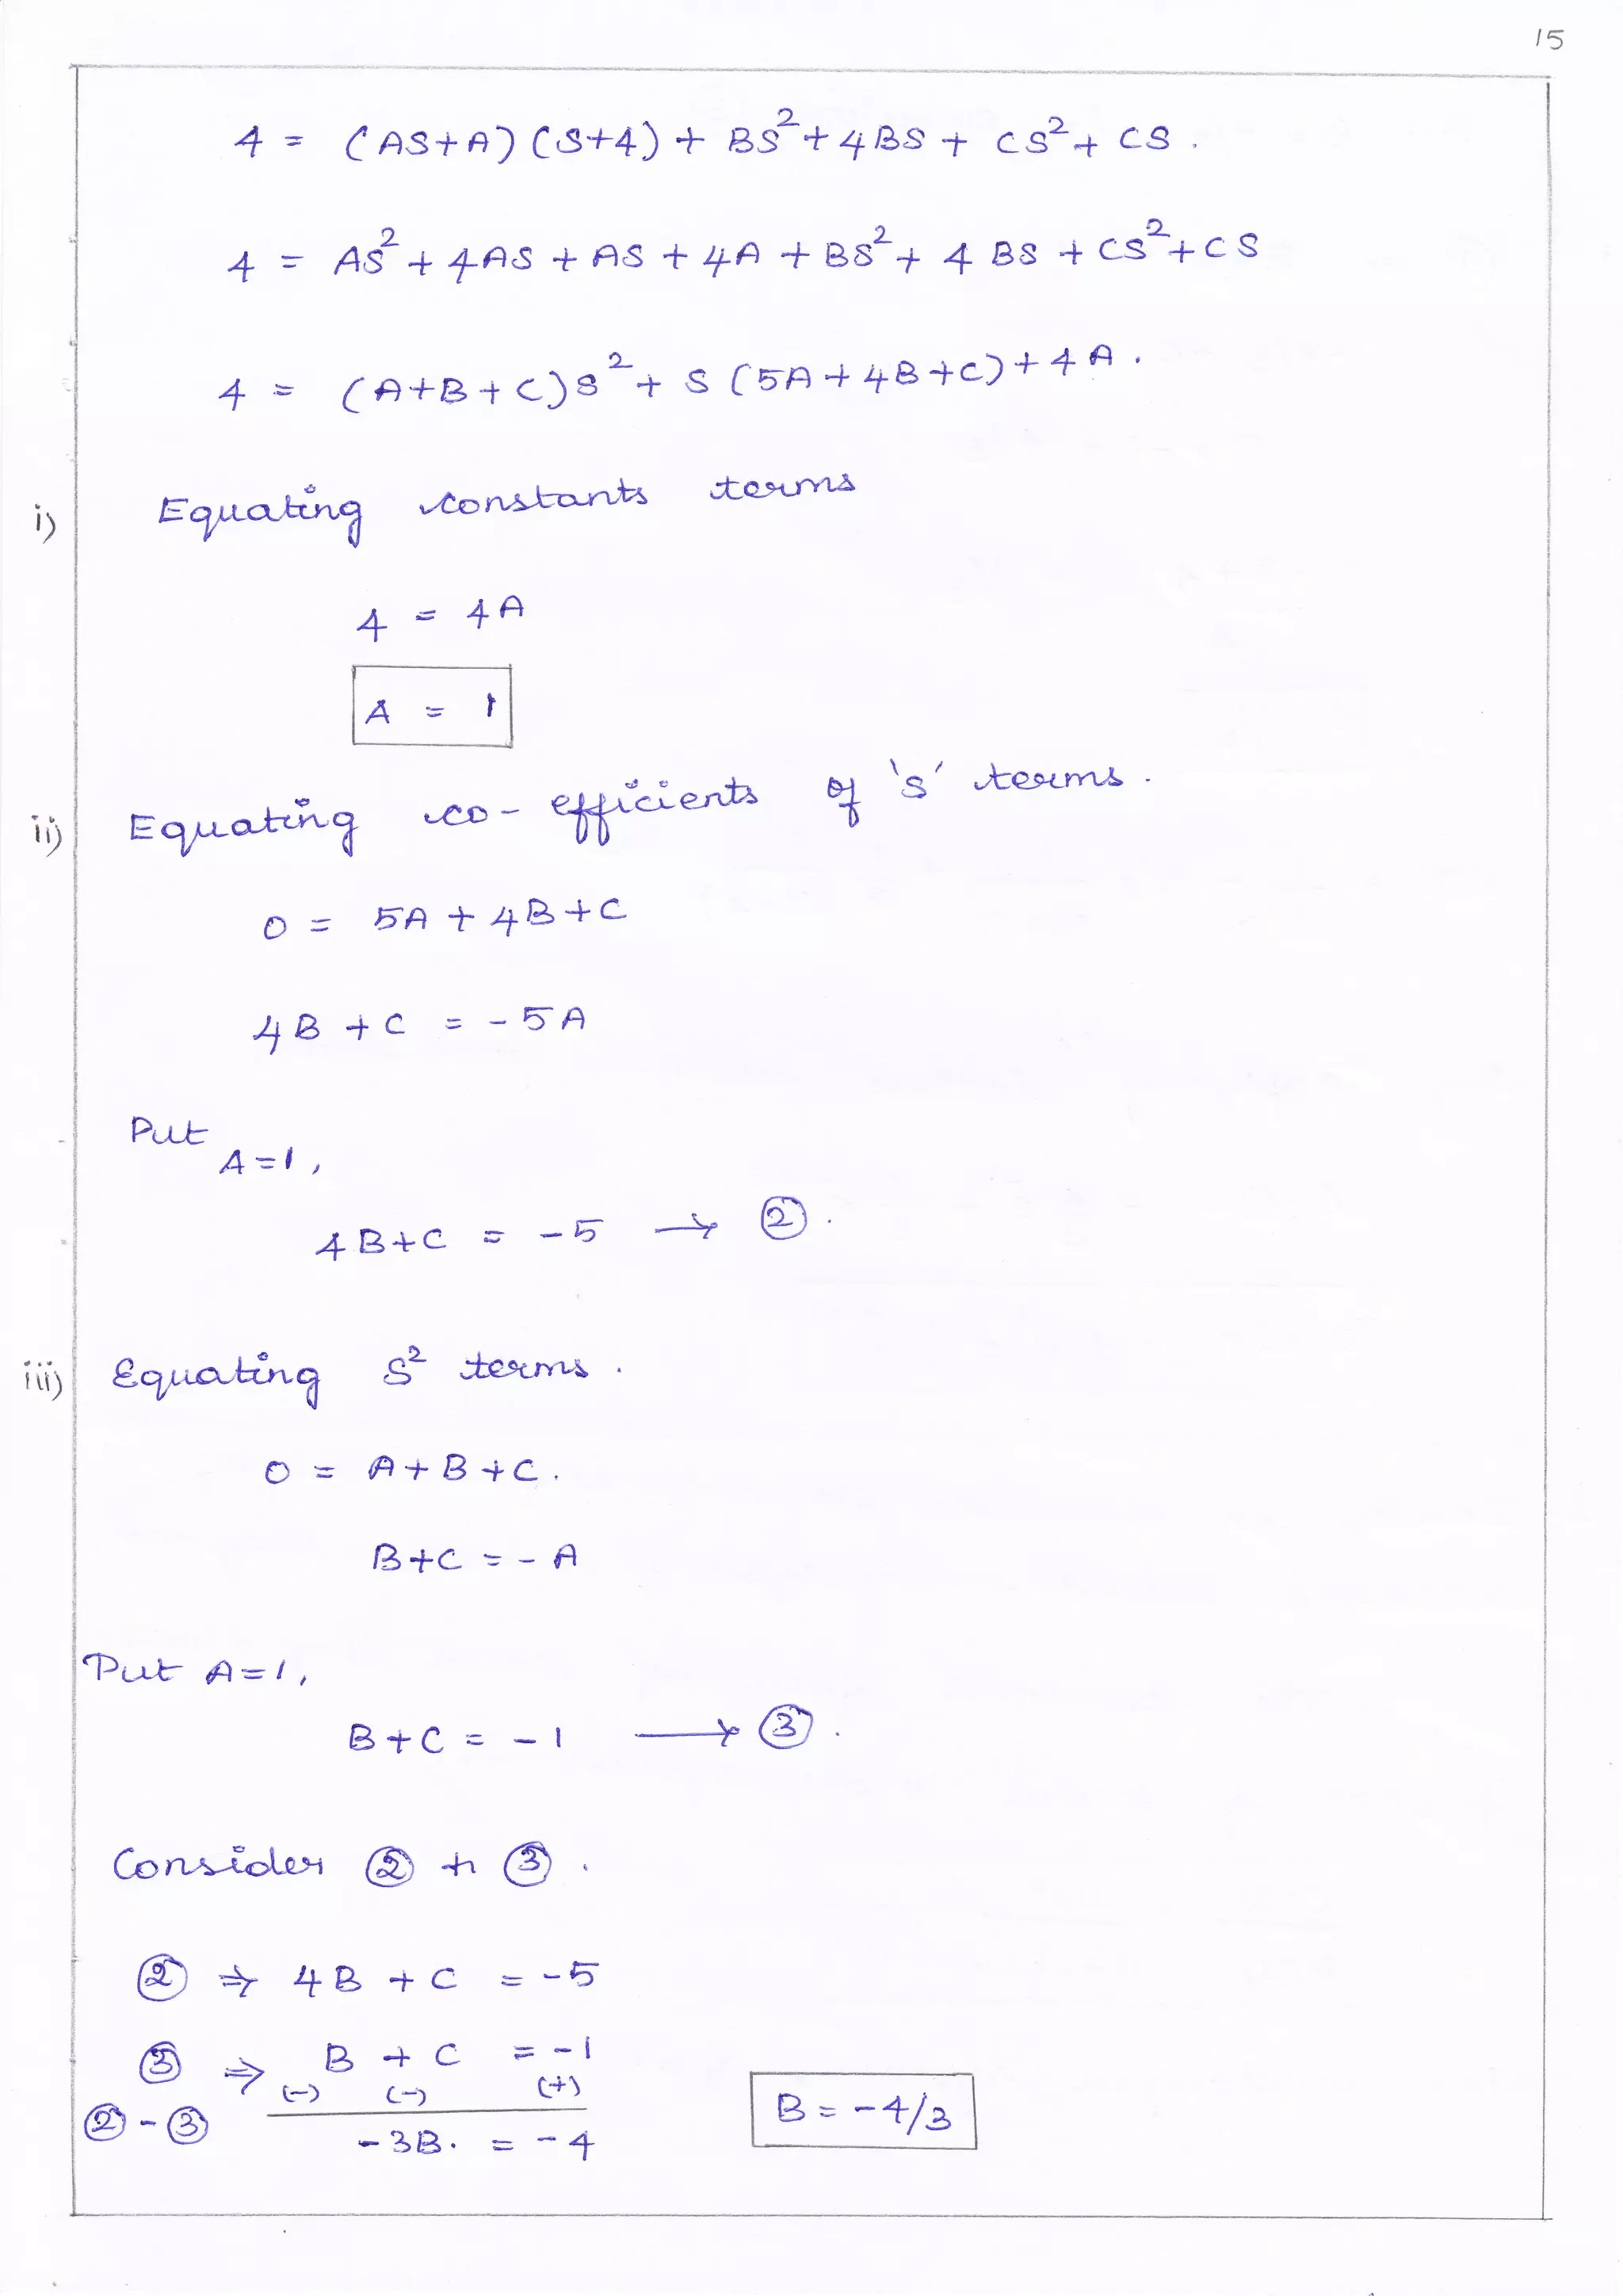 15
4 = (AS+A) (S+4) + BS² + 4BS + CS² + CS .
4 = AS² + 4AS + AS + 4A + BS² + 4 BS + CS² + CS
4 = (A+B+C)S² + S (5A + 4B + C) + 4A .
i) Equating constants terms
4 = 4A
A = 1
ii) Equating co-efficients of 's' terms .
0 = 5A + 4B + C
4B + C = - 5A
Put
A=1 ,
4B+C = -5 → ②.
iii) Equating S² terms .
0 = A + B + C .
B+C = - A
Put A=1 ,
B+C = - 1 → ③ .
Consider ② + ③ .
② ⇒ 4B + C = -5
③ ⇒ B + C = -1
(-) (-) (+)
② - ③
-3B . = -4
B = -4/3